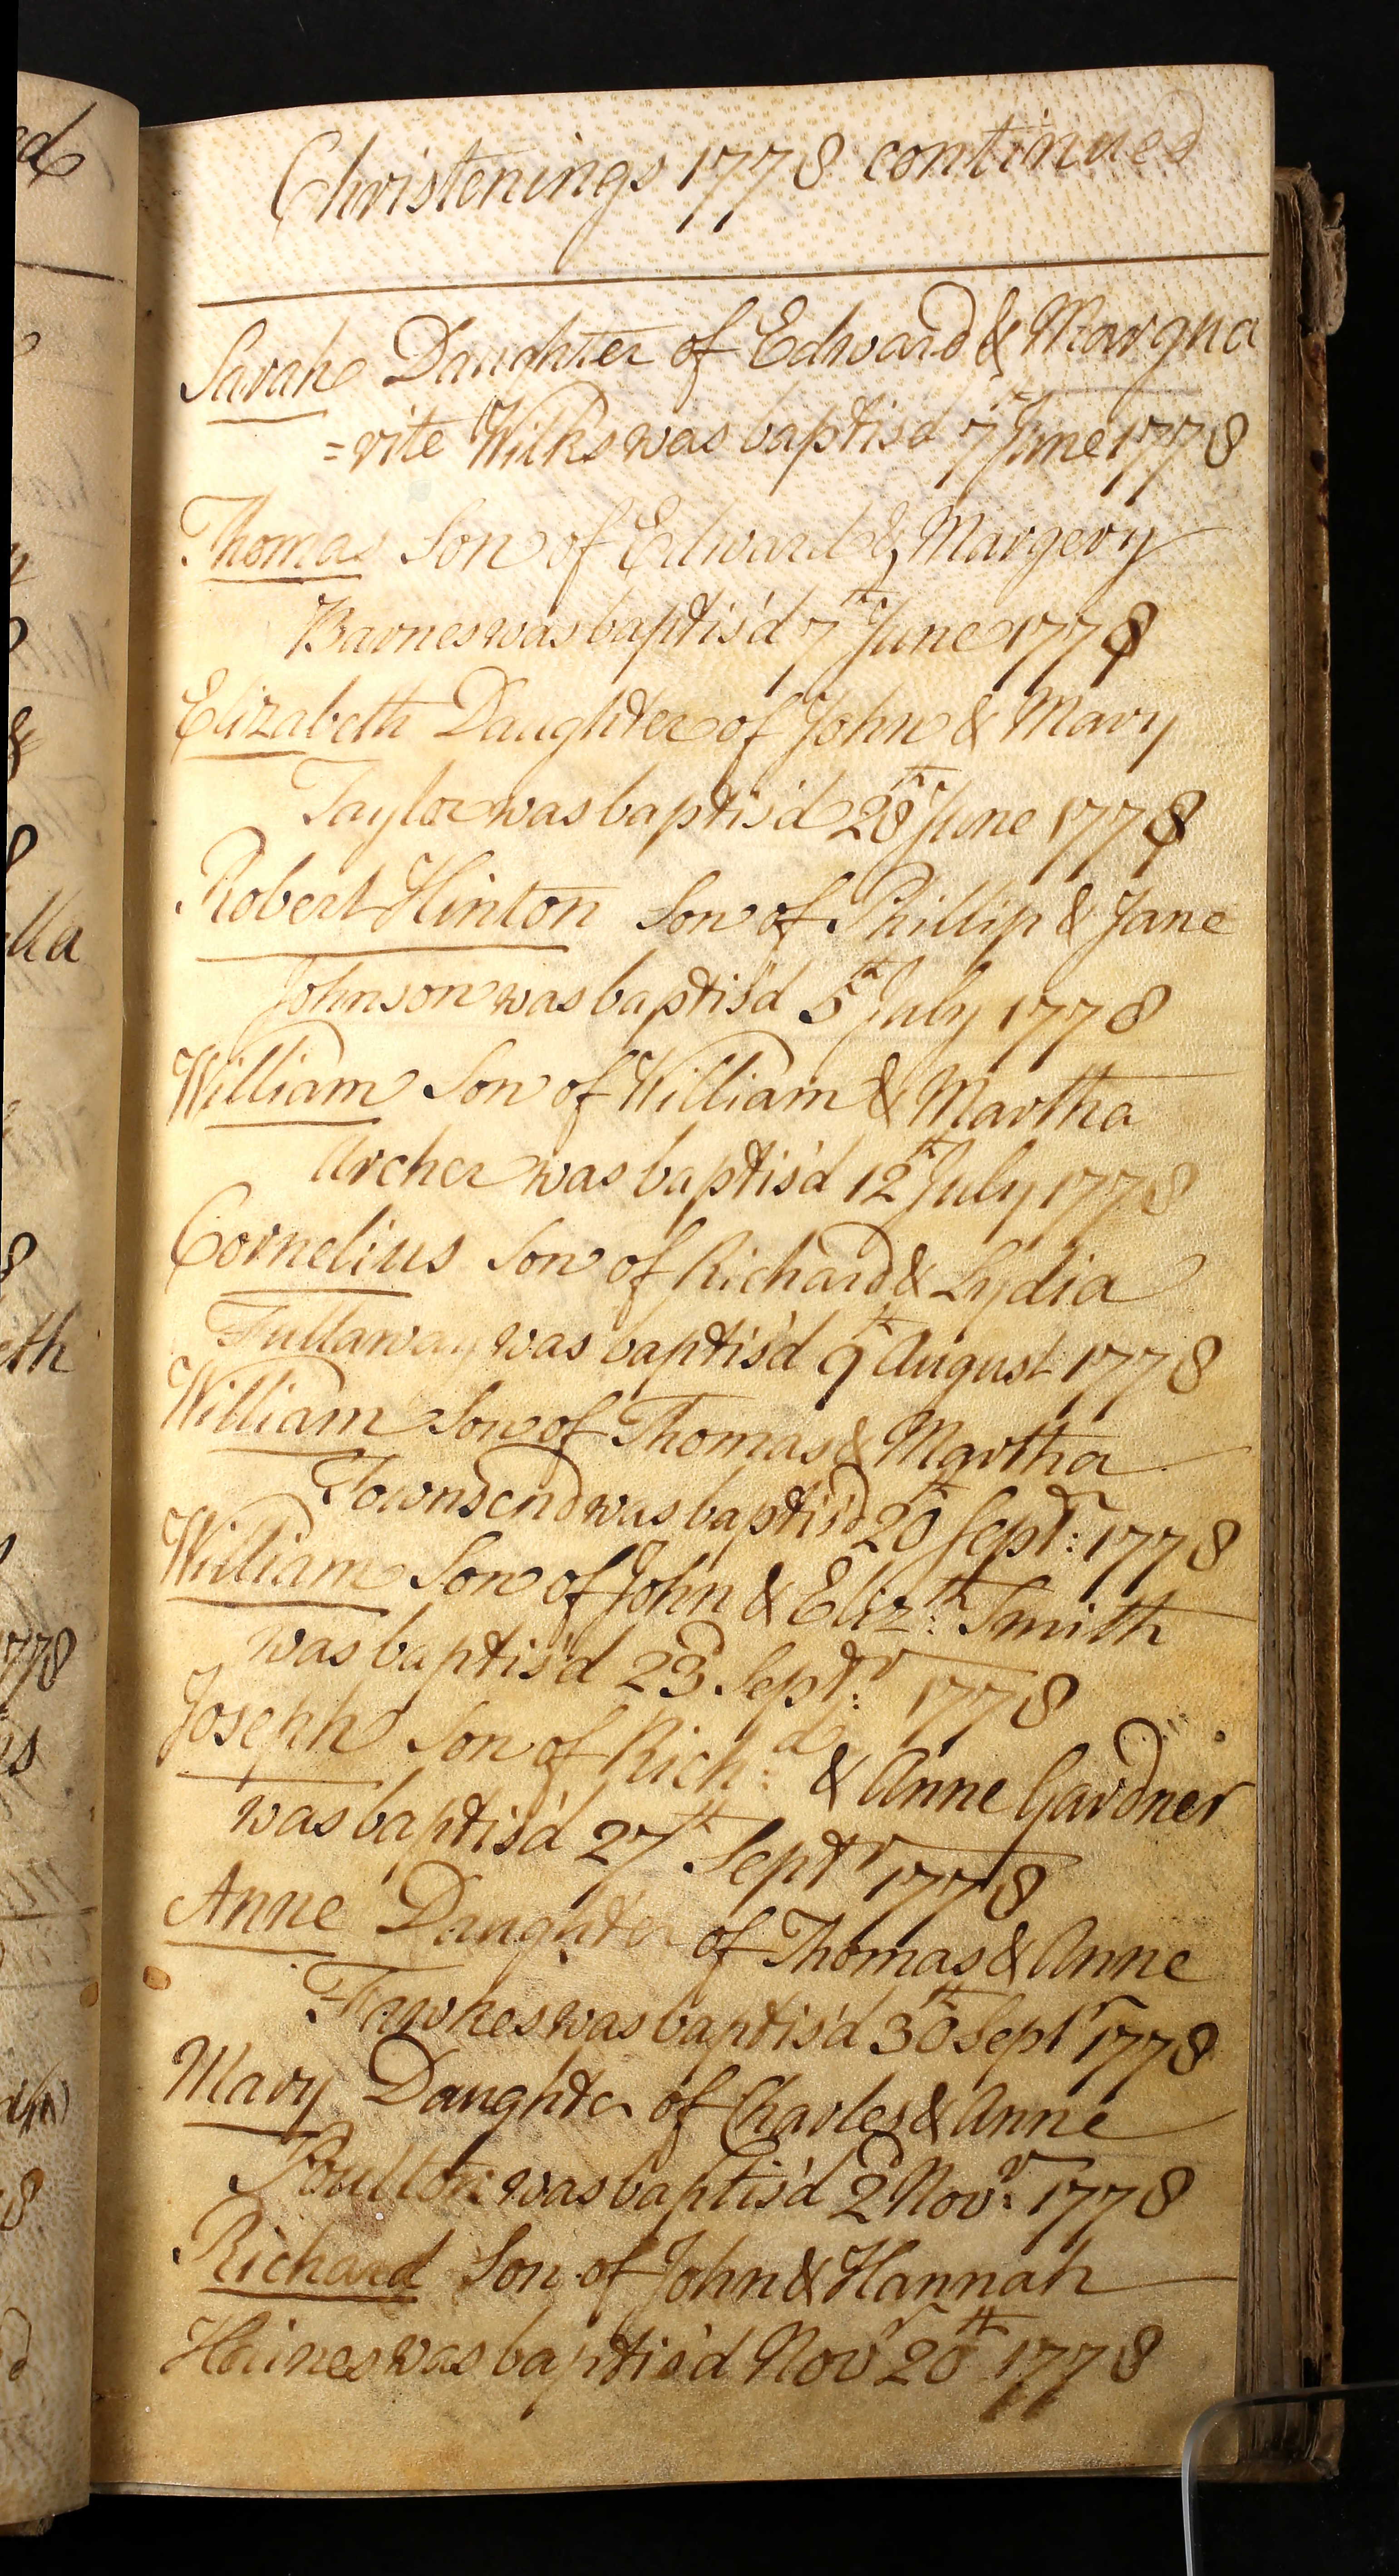 Christenings 1778 continued
Sarah Daughter of Edward & Margua
=rite Wilks was baptis'd 7th June 1778
Thomas Son of Edward & Margery
Barnes was baptis'd 7th June 1778
Elizabeth Daughter of John & Mary
Taylor was baptis'd 28th June 1778
Robert Hinton Son of Phillip & Jane
Johnson was baptis'd 5th July 1778
William Son of William & Martha
Archer was baptis'd 12th July 1778
Cornelius Son of Richard & Lydia
Fullaway was baptis'd 9th August 1778
William Son of Thomas & Martha
Townsend was baptis'd 20th Septr: 1778
William Son of John & Eliz:th Smith
was baptis'd 23d Septr: 1778
Joseph Son of Rich:d & Anne Gardner
was baptis'd 27th Septr 1778
Anne Daughter of Thomas & Anne
Fawkes was baptis'd 30th Septr 1778
Mary Daughter of Charles & Anne
Poulton was baptis'd 2d Novr: 1778
Richard Son of John & Hannah
Haines was baptis'd Novr 20th 1778